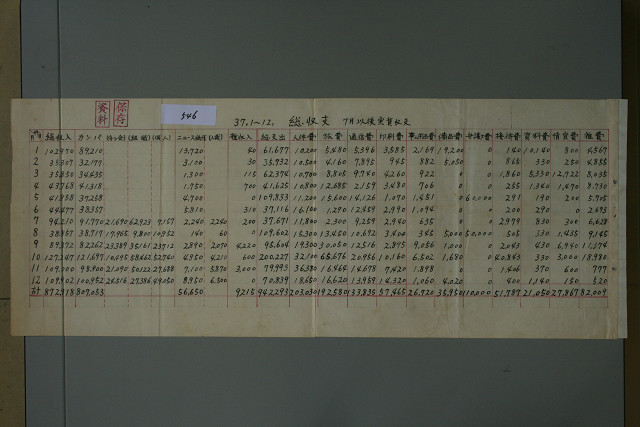 保存
資料
546
37.1〜12. 総収支 7月以後実質収支
月 総収入 カンパ ニュース 雑収入 総支出 人件費 旅費 通信費 印刷費 事務所費 備品費 弁護費 接待費 資料費 借賃費 雑費
1 102,970 89,210 13,720 40 61,677 10,200 5,480 5,396 3,585 2,169 19,200 0 140 10,140 800 4,567
2 35,307 32,177 3,100 30 35,732 10,500 4,160 7,895 945 882 5,050 0 865 330 250 4,855
3 35,850 34,435 1,300 115 62,374 10,700 8,805 9,740 4,260 922 0 0 1,860 5,330 12,722 8,035
4 43,768 41,318 1,750 700 41,625 10,800 12,685 2,159 3,480 706 0 0 255 1,340 1,470 8,730
5 41,958 37,258 4,700 0 109,833 11,200 15,600 14,126 1,070 1,481 0 60,000 291 190 200 5,705
6 44,477 38,357 5,810 310 37,116 16,100 1,290 12,459 2,990 1,094 0 0 200 290 0 2,693
7 94,210 91,770 21,690 62,923 9,157 2,240 2,240 200 37,671 11,800 2,300 9,259 2,940 635 0 0 2,979 830 300 6,628
8 38,987 38,787 17,965 9,800 10,952 140 60 0 109,602 15,300 13,450 10,692 3,400 345 5,000 50,000 505 330 1,435 9,145
9 89,372 82,262 23,389 35,161 23,712 2,890 2,070 4,220 95,604 19,300 30,050 12,516 2,895 9,056 1,000 0 2,043 430 6,940 11,374
10 127,247 121,697 10,495 58,462 52,740 4,950 4,210 600 200,227 32,100 65,676 20,956 10,160 6,502 1,680 0 40,843 330 3,000 18,980
11 109,000 98,900 21,090 50,122 27,688 7,100 5,870 3,000 79,993 36,380 16,464 14,678 7,420 1,898 0 0 1,406 370 600 777
12 109,902 100,952 24,516 27,386 49,050 8,950 6,300 0 70,839 18,650 16,620 13,959 14,320 1,060 4,020 0 400 1,140 150 520
計 872,918 807,053 56,650 9,215 942,293 203,030 192,580 133,835 57,465 26,720 35,950 110,000 51,787 21,050 27,867 82,009